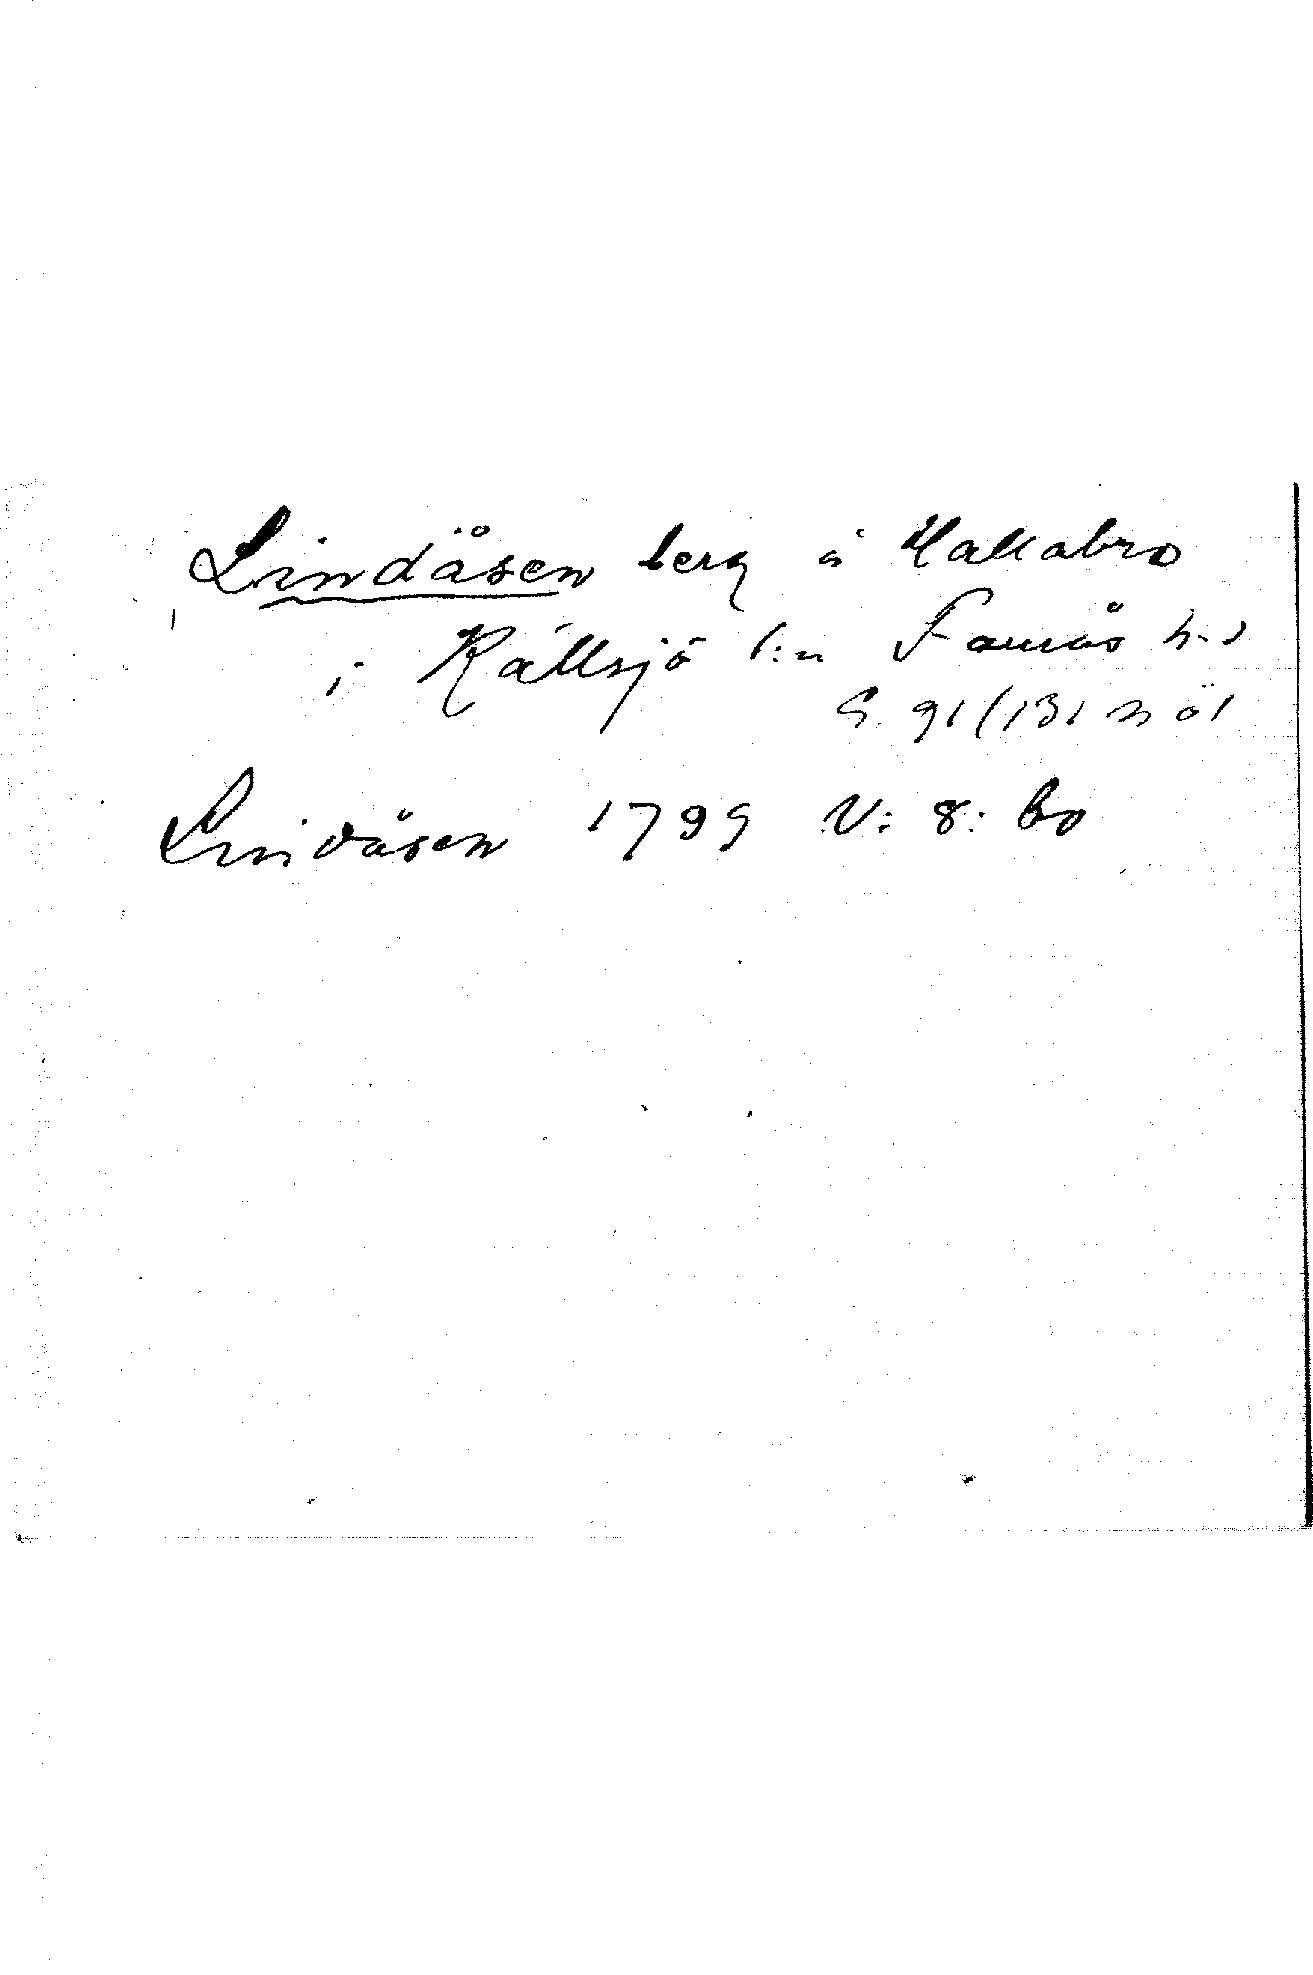 Lindåsen berg å Hallabro
i Källsjö s:n Faurås h-d
G. 91/131 n öl
Lindåsen 1799 V: 8: bo